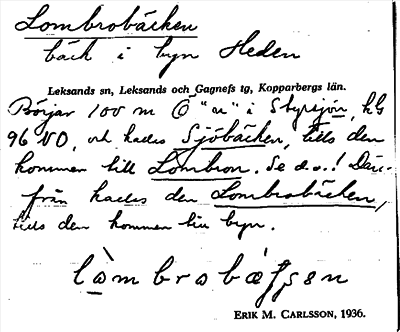 Lombrobäcken
bäck i byn Heden
Leksands sn, Leksands och Gagnefs tg, Kopparbergs län.
Börjar 100 m Ö "n" i Styrsjön, kb
96 VO, och kallas Sjöbäcken, tills den
kommer till Lombron. Se d.o.! Där-
från kallas den Lombrobäcken,
tills den kommer till byn.
lòmbrobæ̀ʃsen
ERIK M. CARLSSON, 1936.